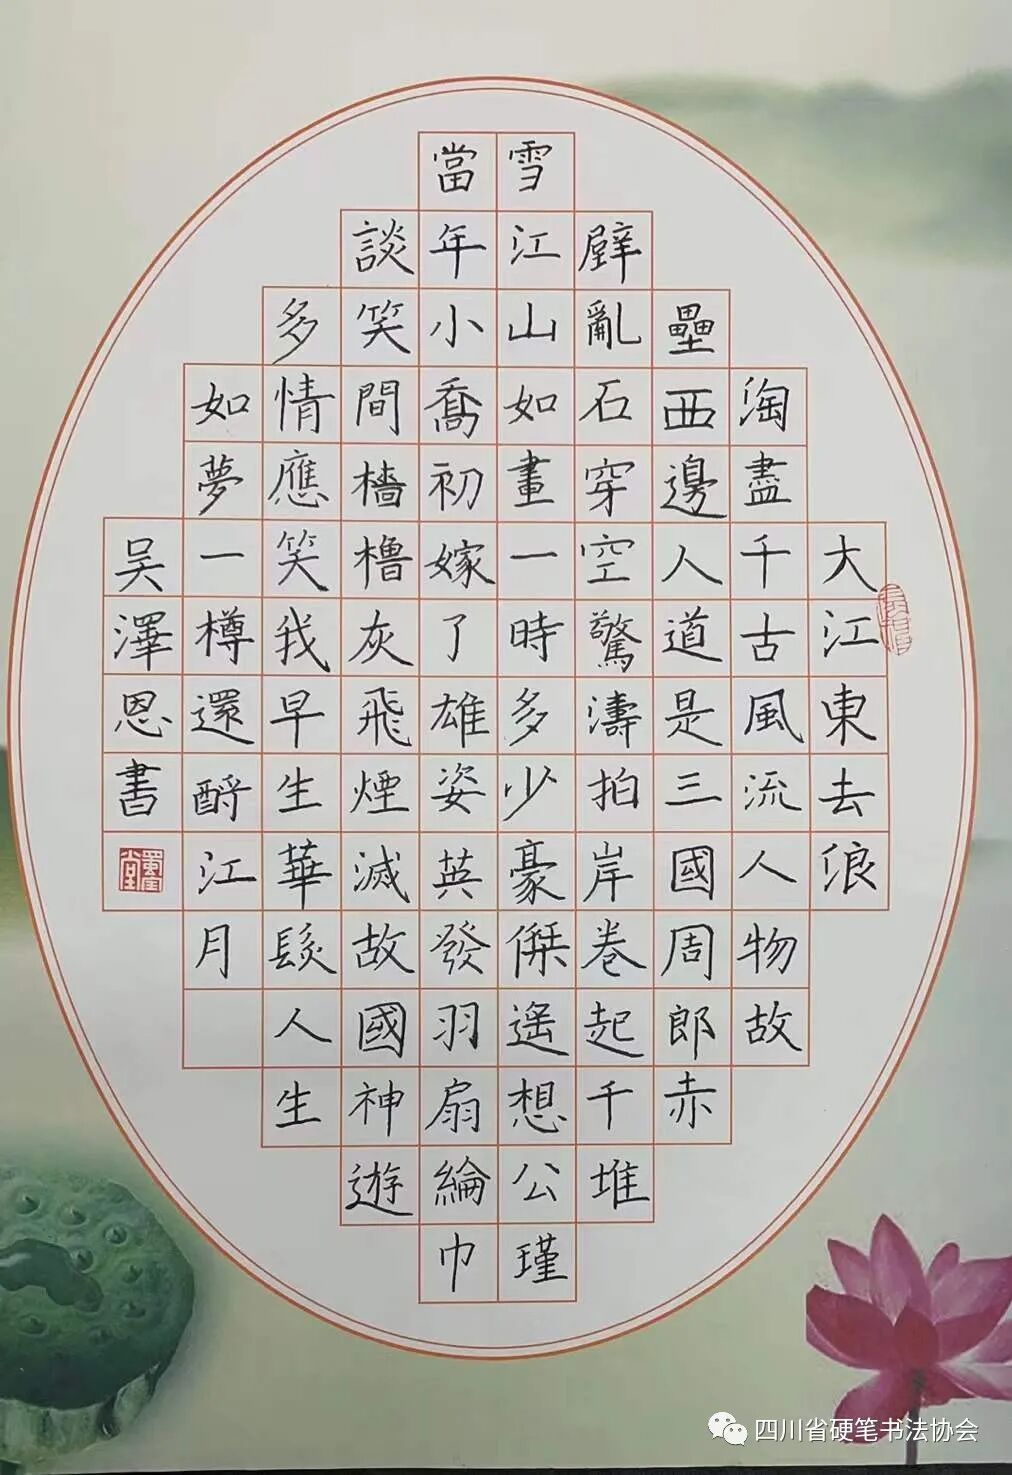 大江東去浪
淘盡千古風流人物故
壘西邊人道是三國周郎赤
壁亂石穿空驚濤拍岸卷起千堆
雪江山如畫一時多少豪傑遙想公瑾
當年小喬初嫁了雄姿英發羽扇綸巾
談笑間檣櫓灰飛煙滅故國神遊
多情應笑我早生華髮人生
如夢一樽還酹江月
吴澤恩書
四川省硬笔书法协会